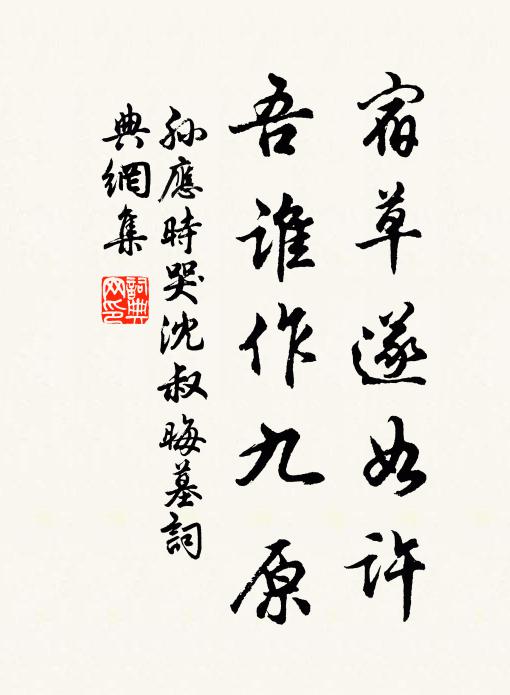 宿草遂如許
吾誰作九原
孙應時哭沈叔晦墓詞
典網集
詞典網印